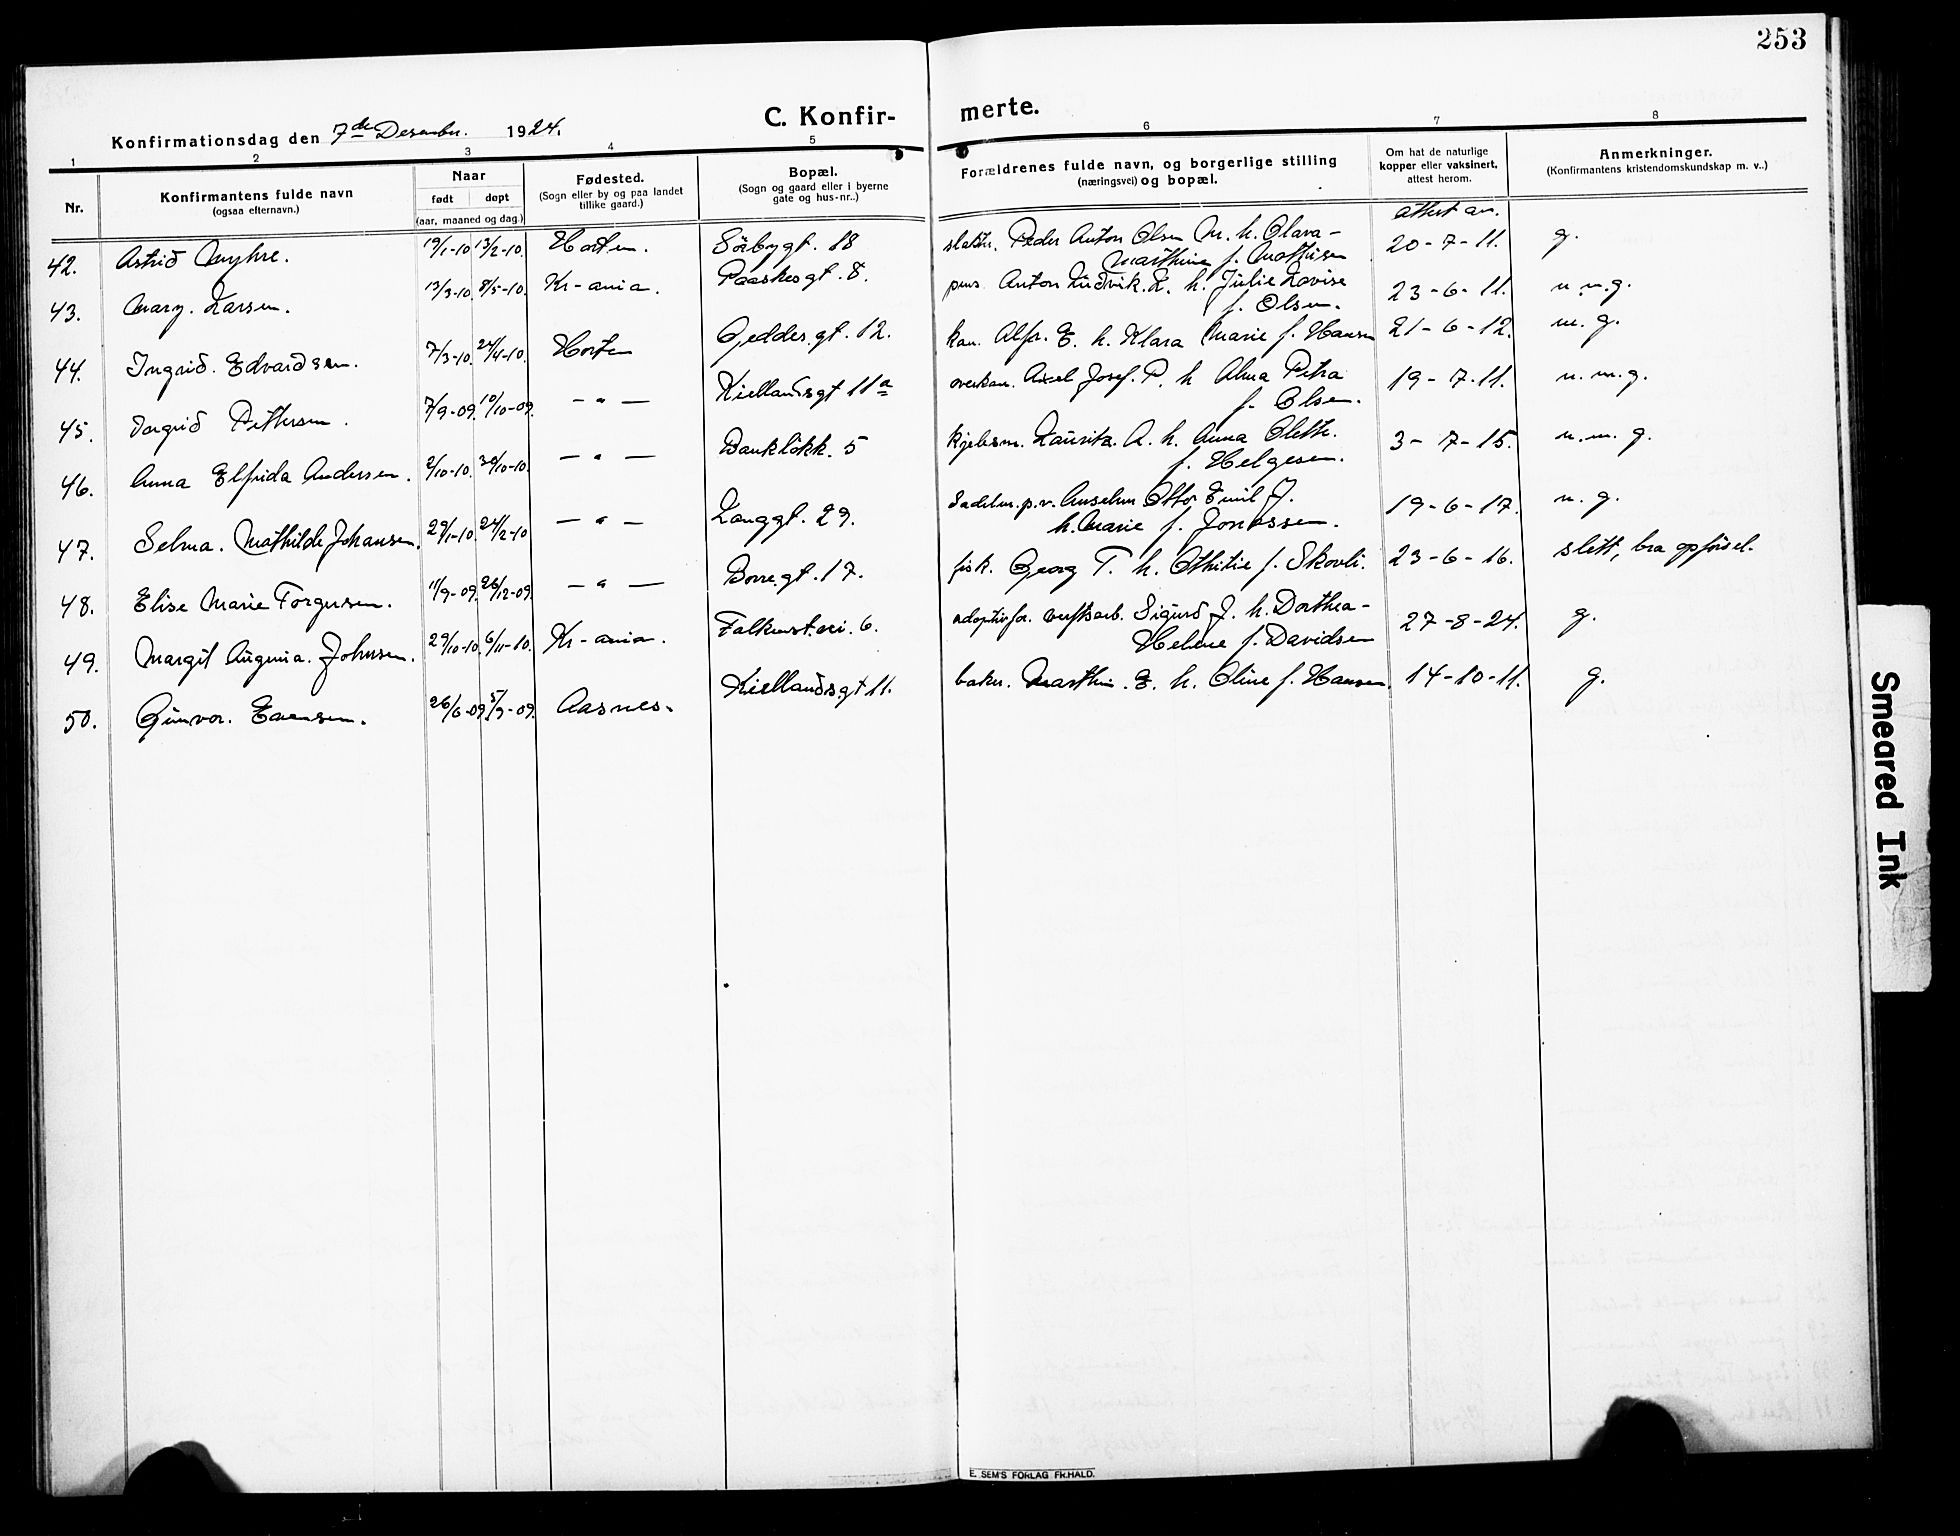 253
C. Konfir- merte.
Konfirmationsdag den 7de Desember. 1924.
1 2 3 4 5 6 7 8
Nr.
Konfirmantens fulde navn
(ogsaa efternavn.)
Naar
født døpt
(aar, maaned og dag.)
Fødested.
(Sogn eller by og paa landet
tillike gaard.)
Bopæl.
(Sogn og gaard eller i byerne
gate og hus-nr..)
Forældrenes fulde navn, og borgerlige stilling
(næringsvei) og bopæl.
Om hat de naturlige
kopper eller vaksinert,
attest herom.
Anmerkninger.
(Konfirmantens kristendomskundskap m. v..)
attest av.
42. Astrid Myhre. 19/1-10 13/2-10. Horten. Söbygt. 18 Peder Anton Olsen M. h. Olava- 20-7-11. g.
Marthine f. Mathisen
43. Mary. Larsen. 13/3-10. 8/5-10. Kr-ania. Paaskesgt. 8. pens. Anton Ludvik. L. h. Julie Lovise 23-6-11. n.m.g.
f. Olsen.
44. Ingrid. Edvardsen. 7/3-10. 24/4-10. Horten Geddes.gt. 12. kan. Alfr. E. h. Klara Marie f. Hansen 21-6-12. m. g.
45. Ingrid Pettersen. 7/9-09. 10/10-09. -"- Kiellandsgt 11a overkan. Axel Josef. P. h Alma Petra 19-7-11. n.m.g.
f. Olsen.
46. Anna Elfrida Andersen. 2/10-10. 30/10-10. -"- Bankløkk. 5 kjelesm. Lauritz. A. h. Anna Oleth. 3-7-15. n.m. g.
f. Helgesen.
47. Selma. Mathilde Johansen. 29/1-10. 24/2-10 -"- Langgt. 29. Sadelm. p.v. Anselm Otto Emil J. 19-6-17. n. g.
h. Marie f. Jonassen.
48. Elise Marie Torgersen. 11/9-09. 26/12-09. -"- Borregt. 17. fisk. Georg T. h. Othilie f. Skovli. 23-6-16. slett, bra opførsel.
49. Margit Eugenia. Johnsen. 29/10-10. 6/11-10. Kr-ania. Falkenst.vei. 6. adoptivfor. verftsarb. Sigurd J. h. Dorthea- 27-8-24. g.
Helene f. Davidsen
50. Gunvor. Evensen. 26/6-09. 5/9-09. Aasnes. Kiellandsgt 11. baker. Marthin. E. h. Oline f. Hansen. 14-10-11. g.
Smeared Ink
E. SEM'S FORLAG FR.HALD.